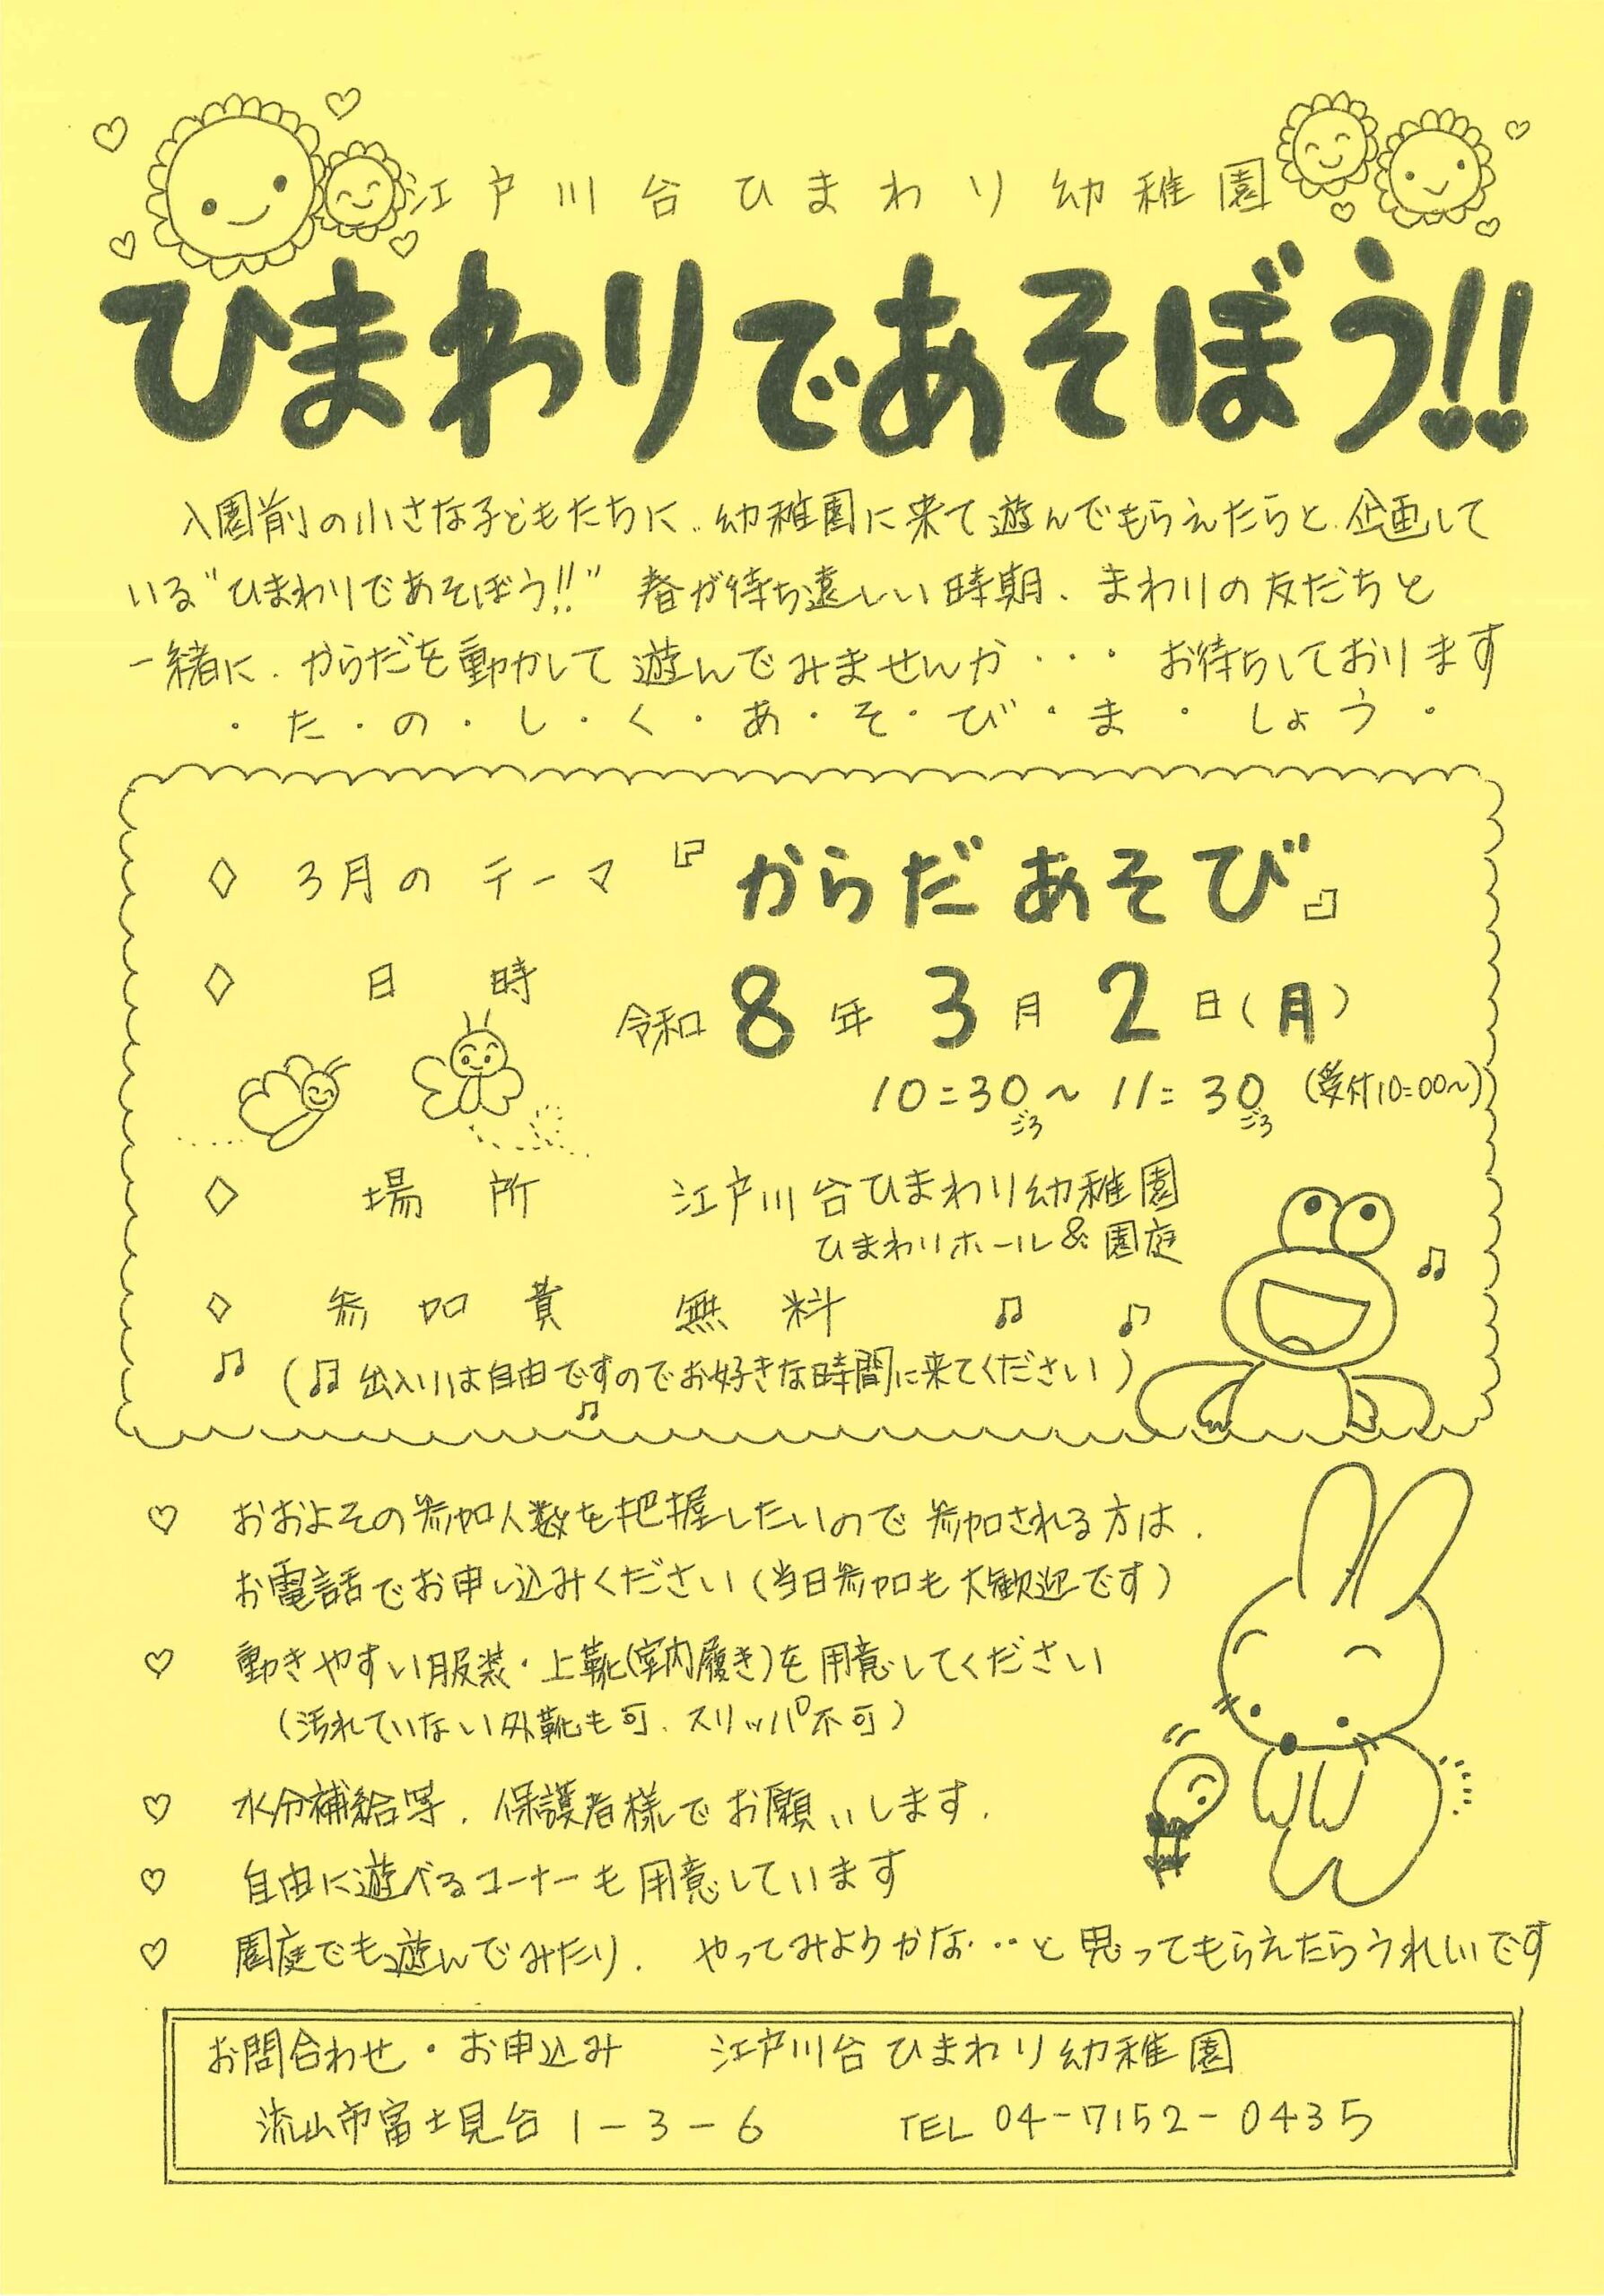 江戸川台ひまわり幼稚園
ひまわりであそぼう!!
入園前の小さな子どもたちに、幼稚園に来て遊んでもらえたらと、企画して
いる"ひまわりであそぼう!!" 春が待ち遠しい時期、まわりの友だちと
一緒に、からだを動かして遊んでみませんか・・・ お待ちしております
・た・の・し・く・あ・そ・び・ま・しょう・
◇ 3月のテーマ 『からだあそび』
◇ 日時 令和8年3月2日(月)
10:30ごろ〜11:30ごろ (受付10:00〜)
◇ 場所 江戸川台ひまわり幼稚園
ひまわりホール&園庭
◇ 参加費 無料
(♫出入りは自由ですのでお好きな時間に来てください)
♡ おおよその参加人数を把握したいので参加される方は、
お電話でお申し込みください(当日参加も大歓迎です)
♡ 動きやすい服装・上靴(室内履き)を用意してください
(汚れていない外靴も可、スリッパ不可)
♡ 水分補給等、保護者様でお願いします。
♡ 自由に遊べるコーナーも用意しています
♡ 園庭でも遊んでみたり、やってみようかな・・・と思ってもらえたらうれしいです
お問合わせ・お申込み 江戸川台ひまわり幼稚園
流山市富士見台1-3-6 TEL 04-7152-0435